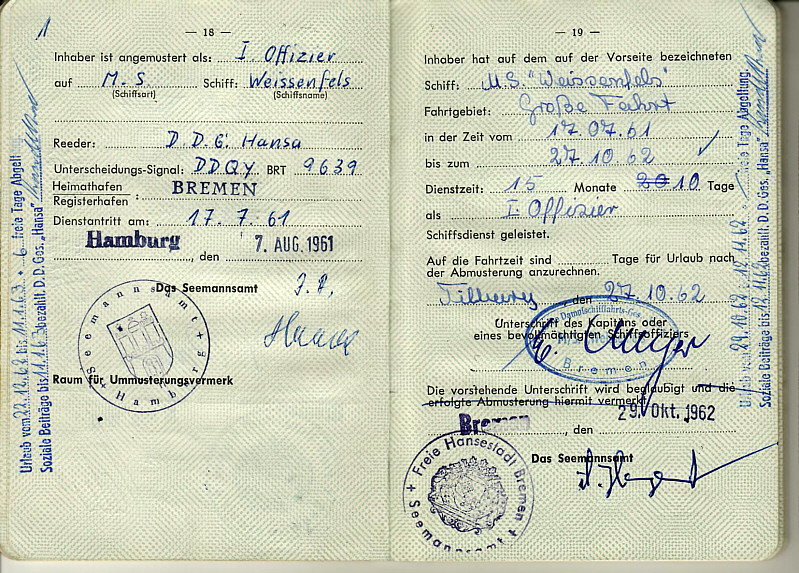 1
— 18 —
Inhaber ist angemustert als: I. Offizier
auf M. S. Schiff: Weissenfels
(Schiffsart) (Schiffsname)
Reeder: D. D. G. Hansa
Unterscheidungs-Signal: DDQY BRT 9639
Heimathafen
Registerhafen BREMEN
Dienstantritt am: 17. 7. 61
Hamburg, den 7. AUG. 1961
Das Seemannsamt
Seemannsamt
+ Hamburg +
Raum für Ummusterungsvermerk
Urlaub vom 22.12.62 bis 11.1.63 + 6 freie Tage Abgeltung
Soziale Beiträge bis bezahlt. D. D. Ges. „Hansa"
— 19 —
Inhaber hat auf dem auf der Vorseite bezeichneten
Schiff: MS. "Weissenfels"
Fahrtgebiet: Große Fahrt
in der Zeit vom 17.07.61
bis zum 27.10.62
Dienstzeit: 15 Monate 20 10 Tage
als I. Offizier
Schiffsdienst geleistet.
Auf die Fahrtzeit sind Tage für Urlaub nach
der Abmusterung anzurechnen.
Tilbury, den 27.10.62
Unterschrift des Kapitäns oder
eines bevollmächtigten Schiffsoffiziers
Dampfschifffahrts-Ges.
Bremen
Die vorstehende Unterschrift wird beglaubigt und die
erfolgte Abmusterung hiermit vermerkt
Bremen, den 29. Okt. 1962
Das Seemannsamt
+ Freie Hansestadt Bremen +
Seemannsamt
Urlaub vom 29.10.62 12.11.62 freie Tage Abgeltung.
Soziale Beiträge bis 12.11.62 bezahlt. D. D. Ges. „Hansa"